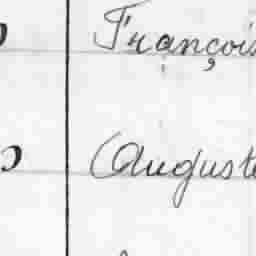 François
Auguste